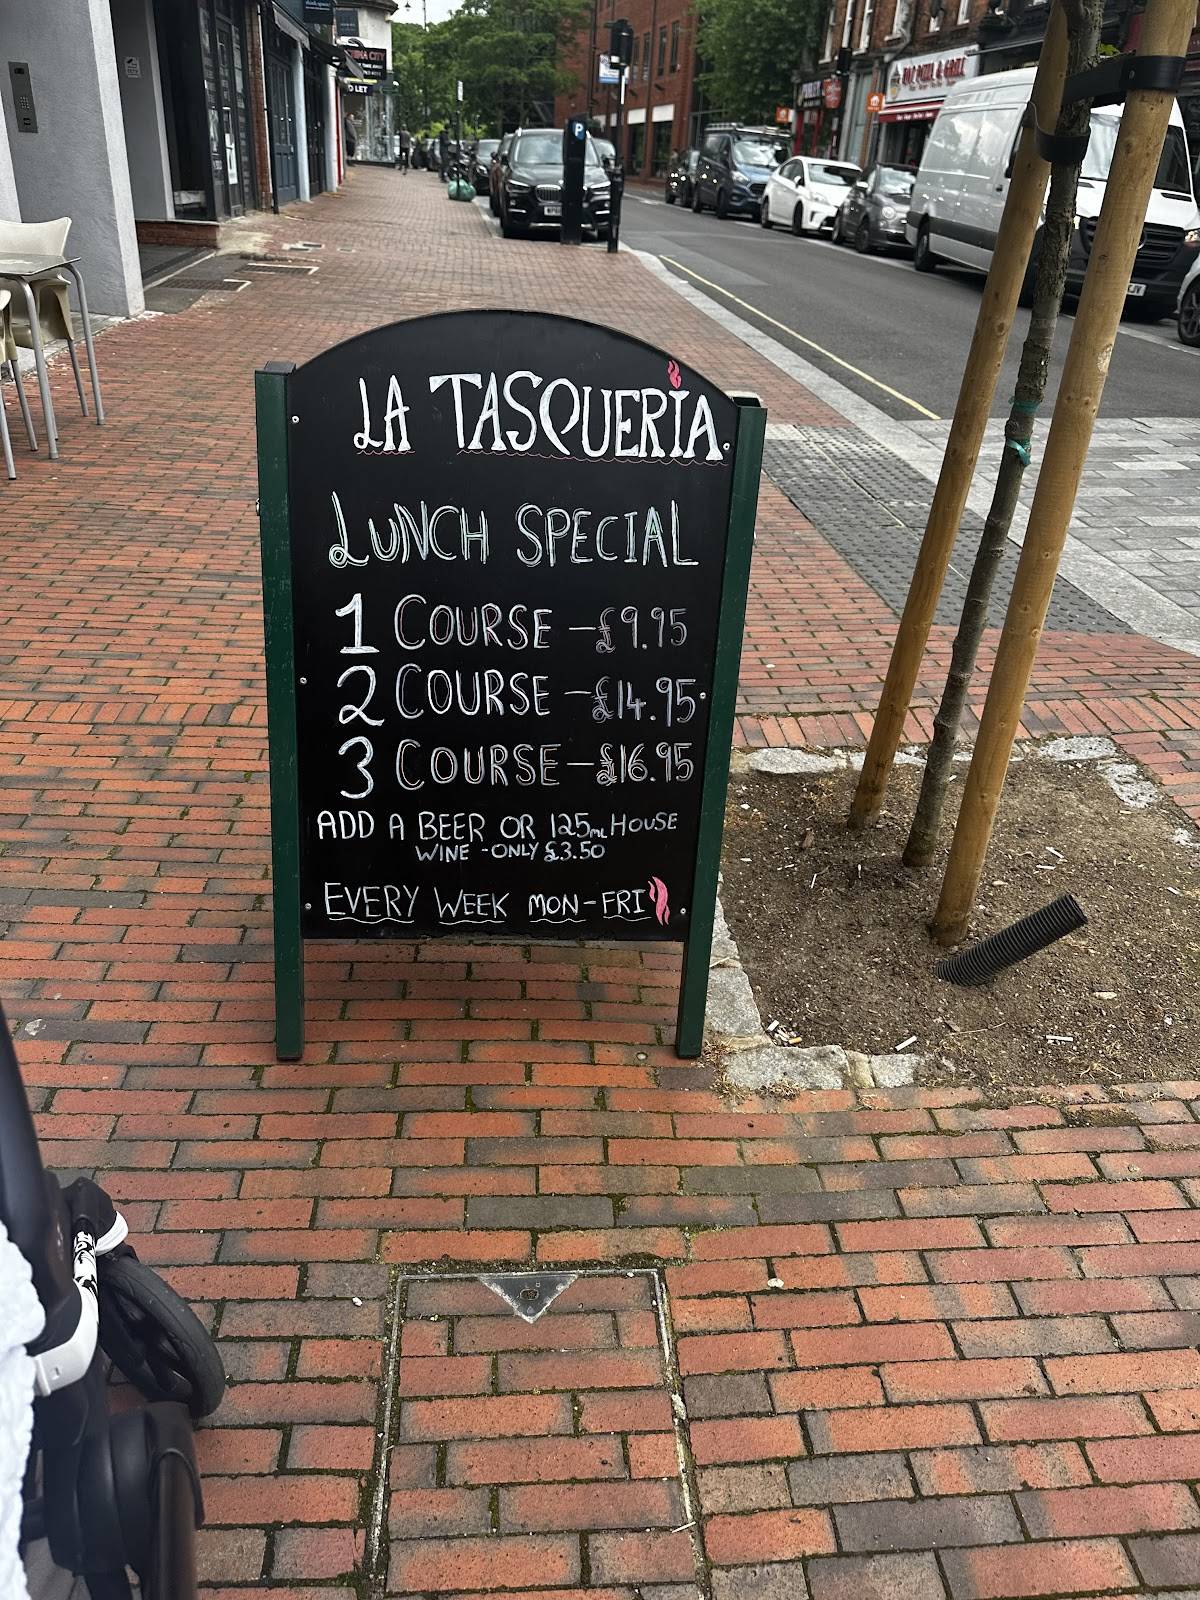 LA TASQUERÍA
LUNCH SPECIAL
1 COURSE - £9.95
2 COURSE - £14.95
3 COURSE - £16.95
ADD A BEER OR 125ML HOUSE
WINE - ONLY £3.50
EVERY WEEK MON - FRI
CITY
LET
PIZZA & GRILL
P